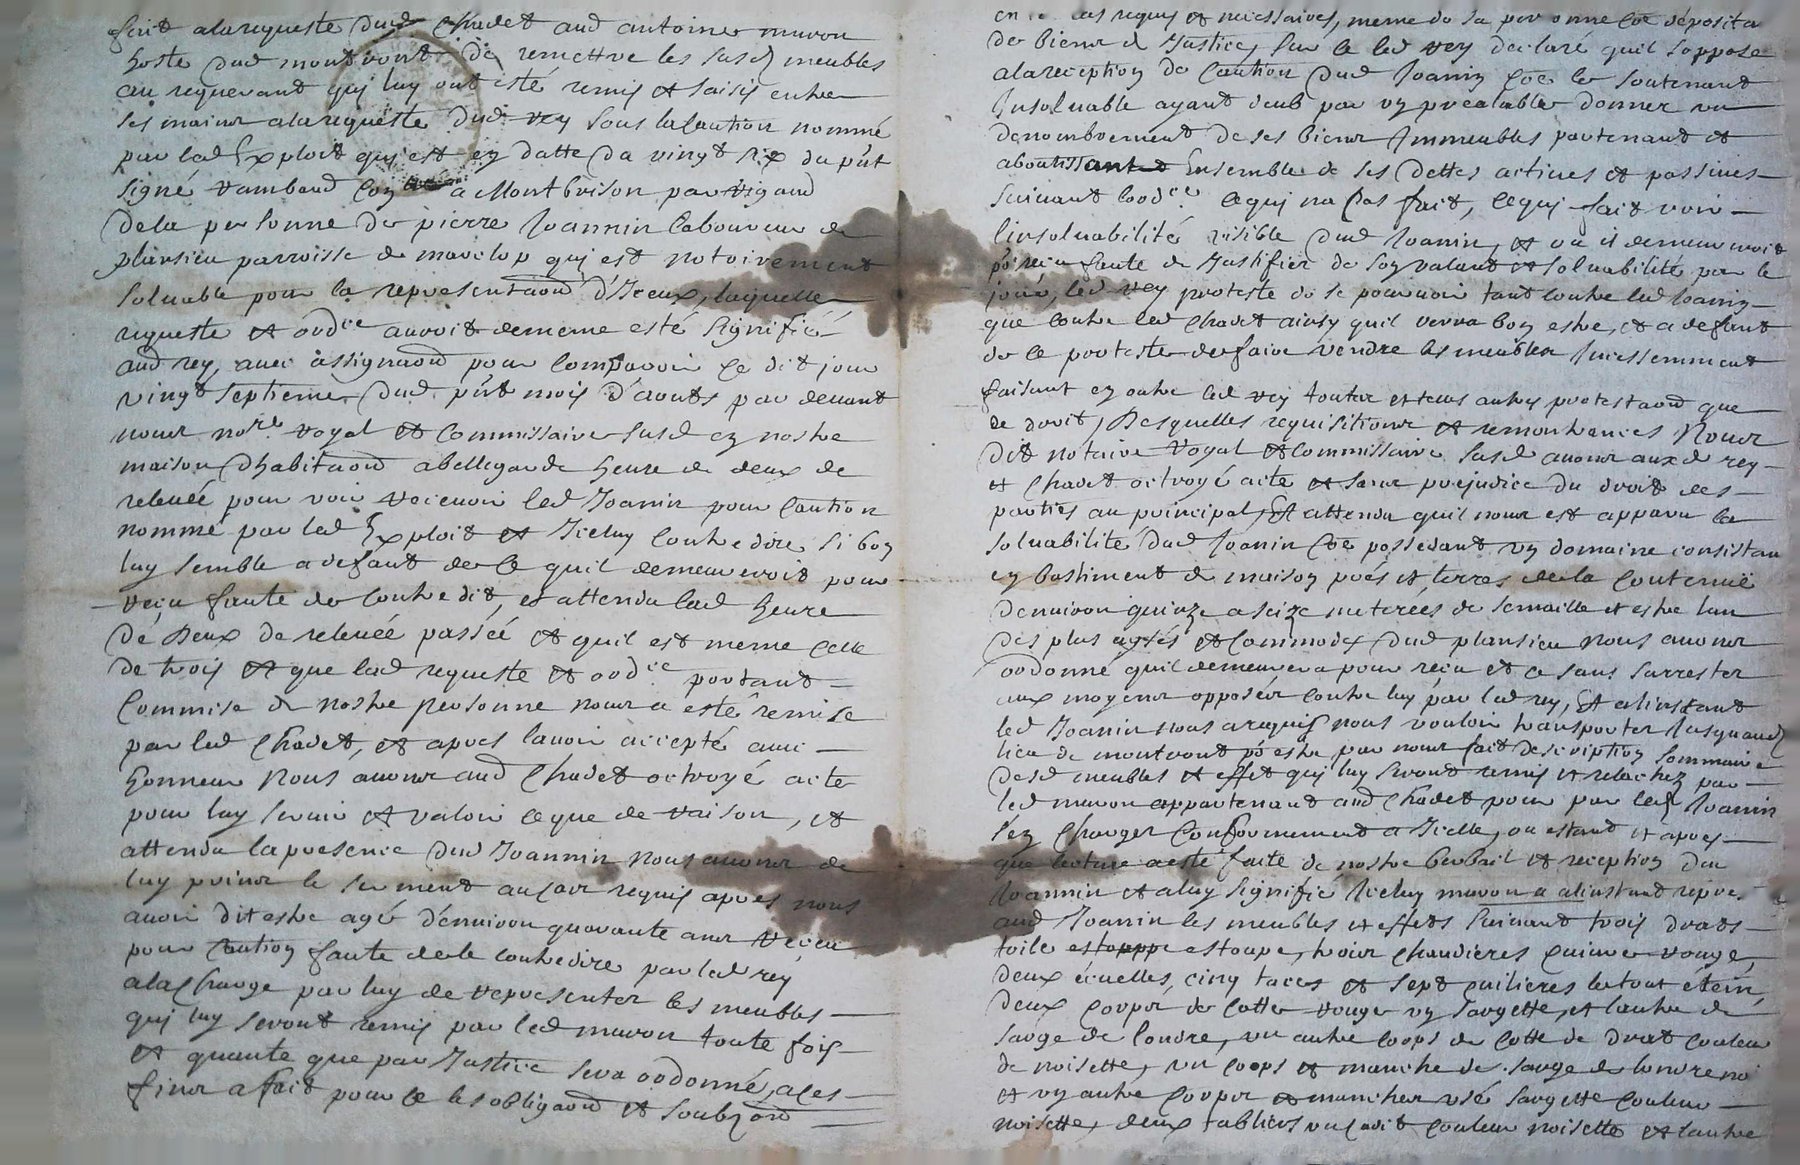 fait alarequeste dud Chadet aud antoine mavon
hoste dud montvont de remettre les susd meubles
au requerant qui luy ont esté remis et saisis entre
ses mains alarequeste dud rey sous la caution nommé
par led Exploit qui est en datte du vingt six du pnt
signé Rambaud a Montbrison par
dela personne de pierre Joannin laboureur de
plansieu parroisse de mavelop qui est notoirement
soluable pour la representaōn d'Iceux, laquelle
requeste et ordce auroit dememe esté signifié
aud rey, avec assignaōn pour comparoir ce dit jour
vingt septieme dud pnt mois d'aoust par devant
nous nore royal et Commissaire susd en nostre
maison dhabitaōn abellegarde heure de deux de
relevée pour voir recevoir led Joanin pour caution
nommé par led Exploit et Iceluy contredire si bon
luy semble a defaut de ce quil demeureroit pour
reçu faute de contredit, et attendu lad heure
de Deux de relevée passée et quil est meme celle
de trois et que lad requeste et ordce portant
Commise de nostre personne nous a esté remise
par led Chadet, et apres lavoir accepté avec
honneur Nous avons aud Chadet octroyé acte
pour luy servir et valoir ceque de raison, et
attendu la presence dud Joannin nous avons de
luy prins le serment au cas requis apres nous
avoir dit estre agé d'environ quarante ans receu
pour caution faute dele contredire par led rey
ala charge par luy de representer les meubles
qui luy seront remis par led mavon toute fois
et quante que par Justice sera ordonné, a ces
fins a fait pour ce les obligaōn et soubzōn
en ce cas requis et necessaires, meme de sa personne cōe déposita
de biens de Justice, sur ce led rey declaré quil soppose
alareception de caution dud Joanin cōe le soutenant
Insoluable ayant deub par un prealable donner un
denombrement de ses biens Immeubles partenant et
aboutissant Ensemble de ses dettes actives et passives
suivant lordce ce qui na pas fait, ce qui fait voir
linsoluabilité visible dud Joanin, et ou il demeureroit
pr reçu faute de Justifier de son valant et soluabilité par le
jour, led rey proteste de se pourvoir tant contre led Joanin
que contre led Chadet ainsy quil verra bon estre, et a defaut
de ce proteste de faire vendre les meubles Incessemment
faisant en outre led rey toutes et tous autres protestaōn que
de droit, Desquelles requisitions et remontrances Nous
Dit notaire Royal et Commissaire susd avons aux d rey
et Chadet octroyé acte et sans prejudice du droit des
parties au principal, Et attendu quil nous est apparu la
soluabilité dud Joanin cōe possedant un domaine consistan
en bastiment de maison prés et terres dela contenue
denviron quinze a seize meterées de semaille et estre lun
des plus aysés et Commodes dud plansieu nous avons
ordonné quil demeurera pour reçu et ce sans sarrester
aux moyens opposés contre luy par led rey, Et alinstant
led Joanin nous a requis nous vouloir transporter Jusquaud
lieu de montvont pr estre par nous fait description sommaire
desd meubles et effet qui luy seront remis et relachez par
led mavon appartenant aud Chadet pour par led Joanin
s'en charger Conformement a Icelle, ou estant et apres
que lecture a esté faite de nostre verbail et reception du
Joannin et a luy signifié Iceluy mavon a alinstant repre.
aud Joanin les meubles et effets suivant trois draps
toile estouppe estoupe, trois chaudieres cuivre rouge,
deux écuelles, cinq tacés et sept cuilieres letout etein,
deux corps de cotte rouge un sargette, et lautre de
sarge de londre, un autre corps de cotte de drat couleur
de noisette, un corps et manche de sarge de londre noi
et un autre corps et manches usé sargette couleur
noisette, deux tabliers un cadit couleur noisette et lautre